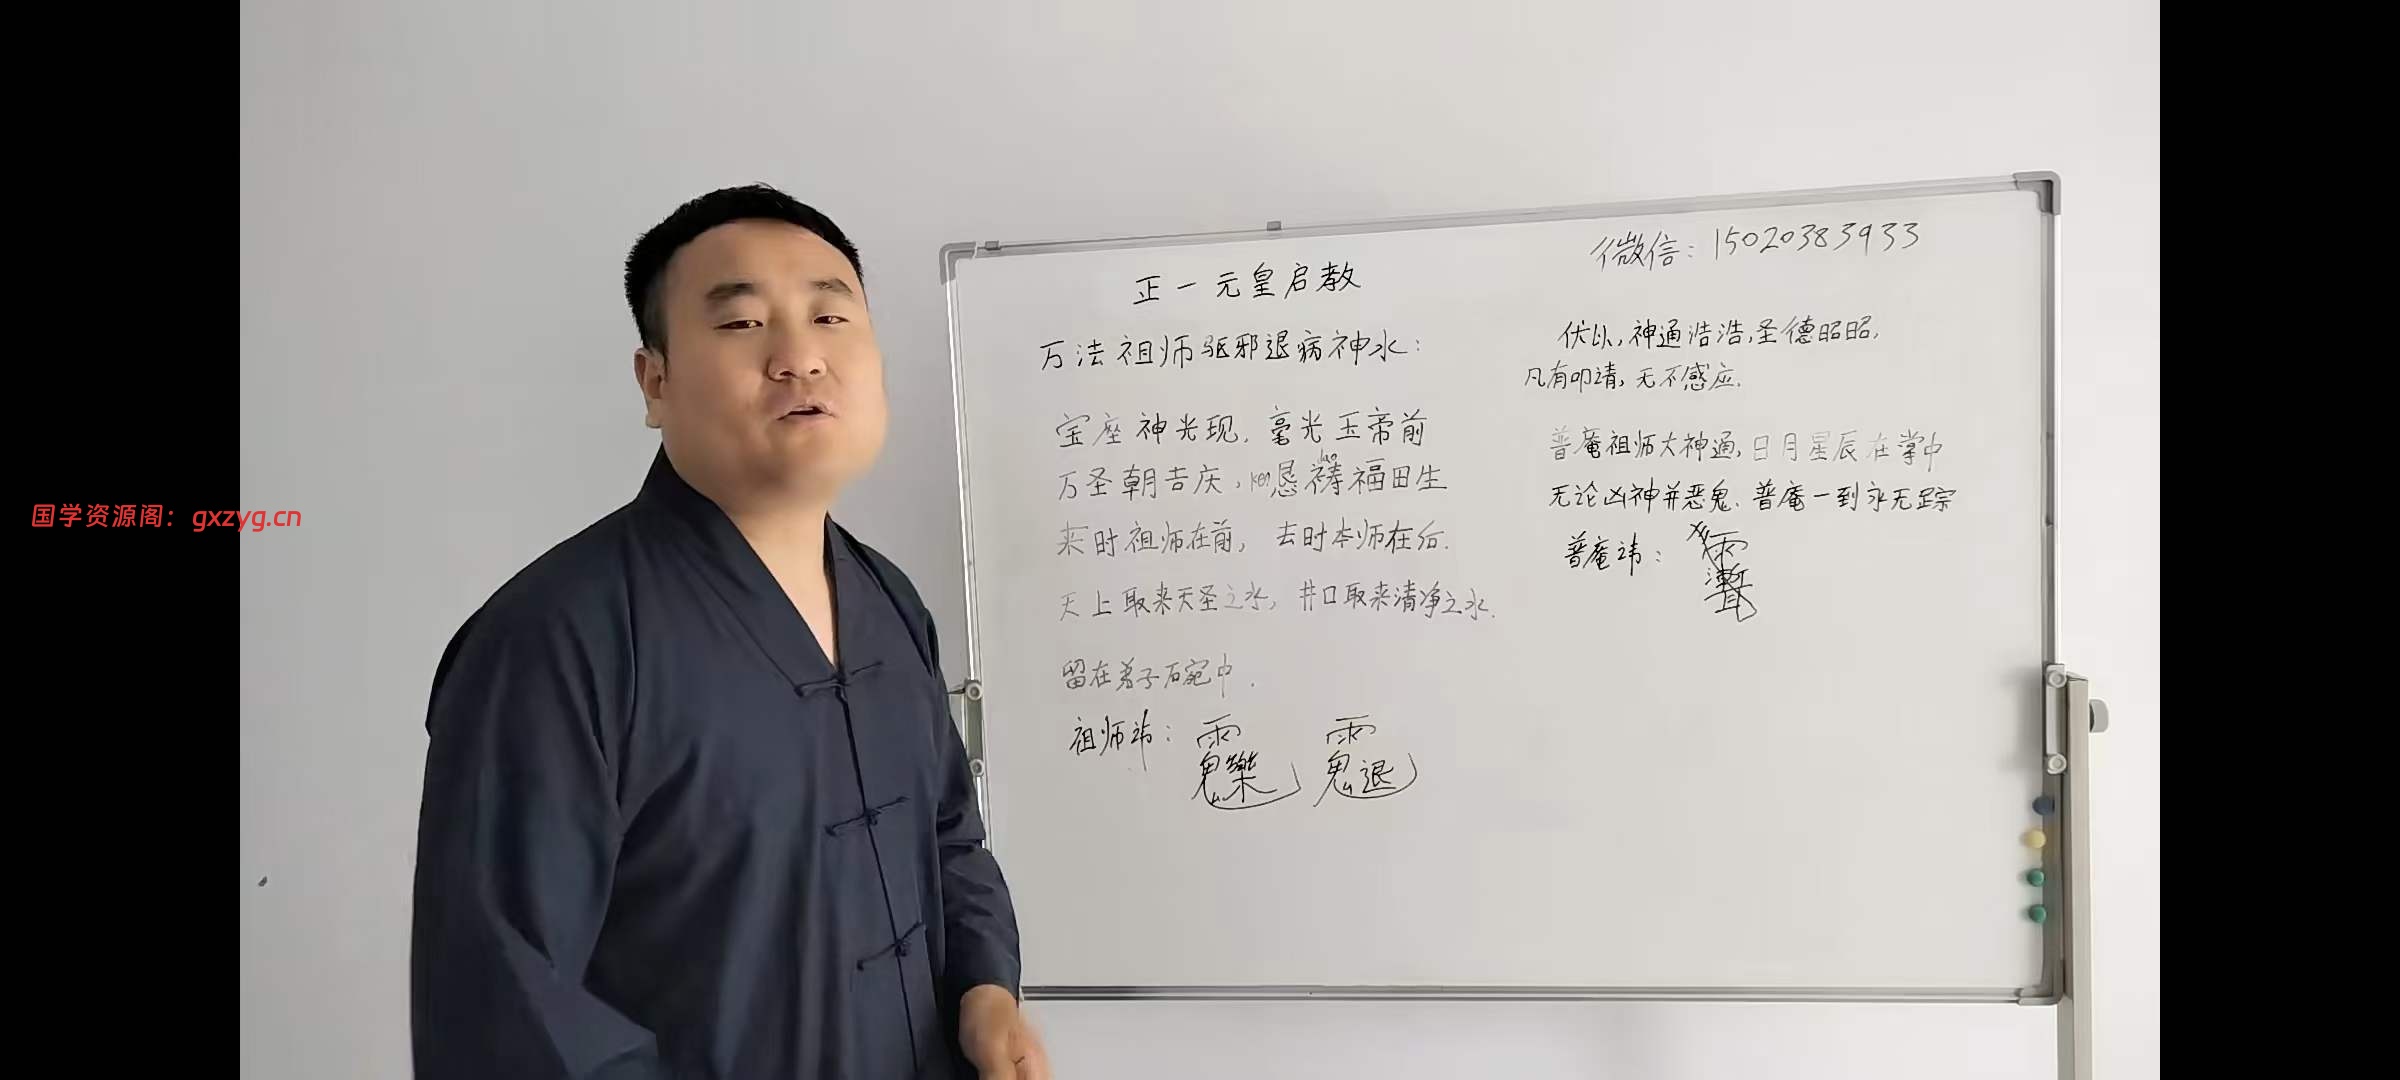 国学资源阁：gxzyg.cn
正一元皇启教
万法祖师驱邪退病神水：
宝座神光现，毫光玉帝前
万圣朝吉庆，ken恳祷福田生
来时祖师在前，去时本师在后.
天上取来天圣之水，井口取来清净之水.
留在弟子石宛中.
祖师讳：
微信：15020383933
伏以，神通浩浩，圣德昭昭，
凡有叩请，无不感应.
普庵祖师大神通，日月星辰在掌中
无论凶神并恶鬼.普庵一到永无踪
普庵讳：